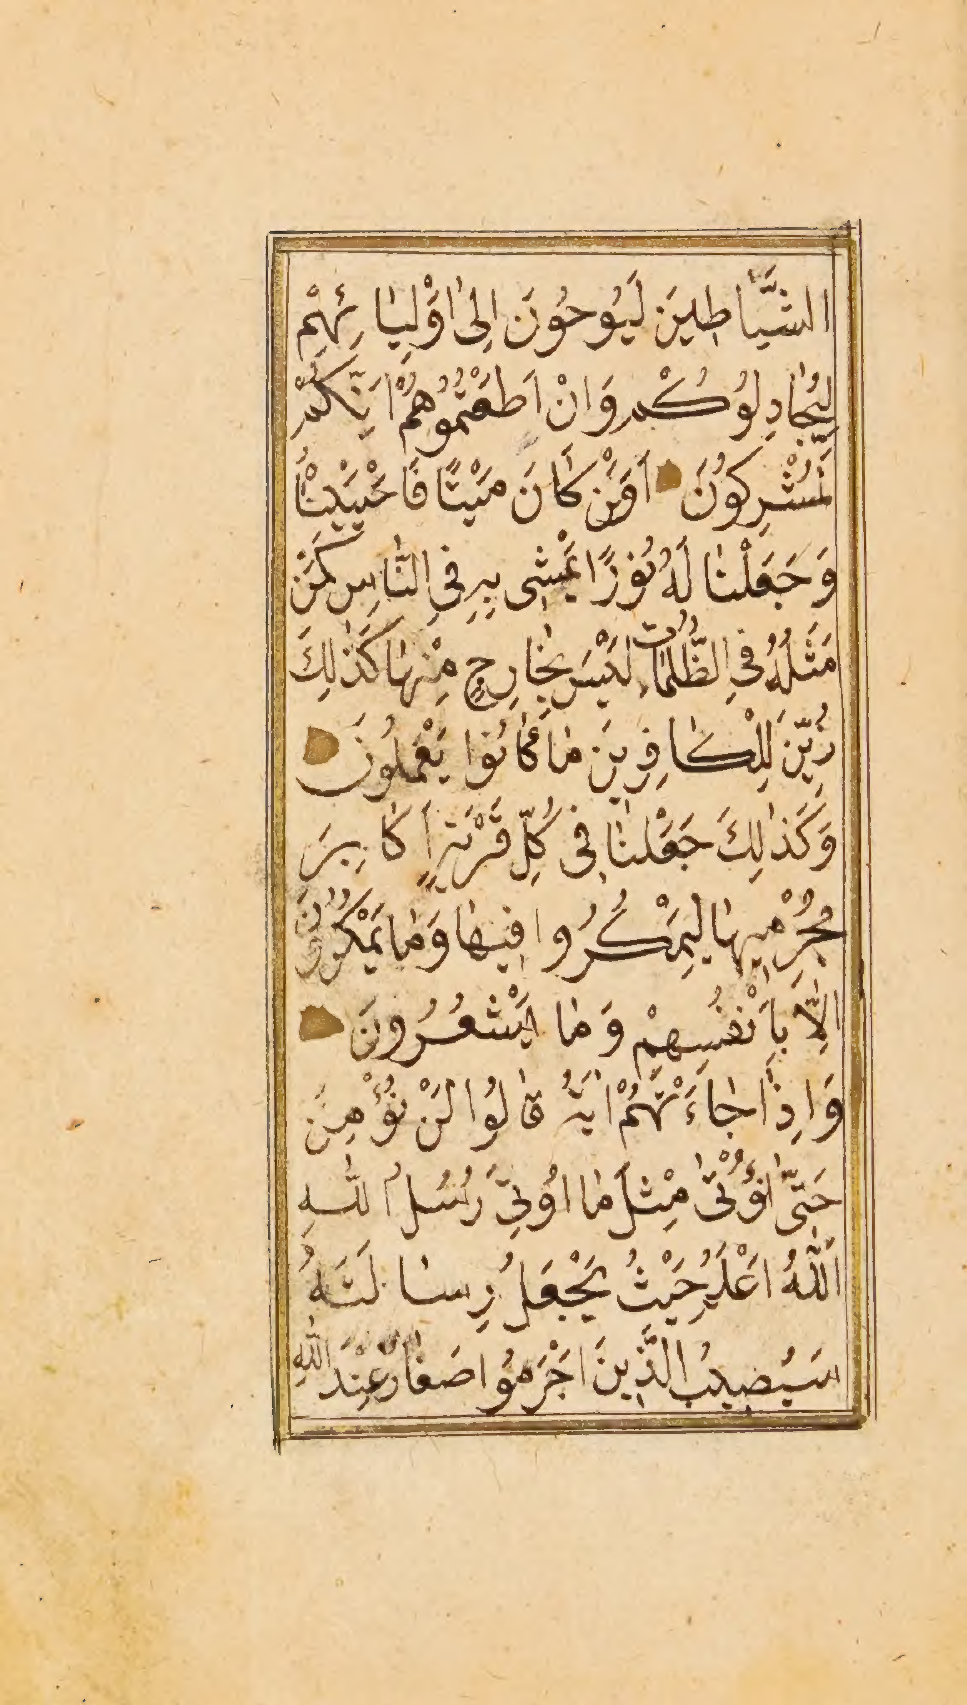 الشَّيَاطِينَ لَيُوحُونَ اِلٰى اَوْلِيَائِهِمْ
لِيُجَادِلُوكُمْ وَاِنْ اَطَعْتُمُوهُمْ اِنَّكُمْ
لَمُشْرِكُونَ اَوَمَنْ كَانَ مَيْتًا فَاَحْيَيْنَاهُ
وَجَعَلْنَا لَهُ نُورًا يَمْشِى بِهِ فِى النَّاسِ كَمَنْ
مَثَلُهُ فِى الظُّلُمَاتِ لَيْسَ بِخَارِجٍ مِنْهَا كَذٰلِكَ
زُيِّنَ لِلْكَافِرِينَ مَا كَانُوا يَعْمَلُونَ
وَكَذٰلِكَ جَعَلْنَا فِى كُلِّ قَرْيَةٍ اَكَابِرَ
مُجْرِمِيهَا لِيَمْكُرُوا فِيهَا وَمَا يَمْكُرُونَ
اِلَّا بِاَنْفُسِهِمْ وَمَا يَشْعُرُونَ
وَاِذَا جَاءَتْهُمْ اٰيَةٌ قَالُوا لَنْ نُؤْمِنَ
حَتّٰى نُؤْتٰى مِثْلَ مَا اُوتِىَ رُسُلُ اللّٰهِ
اَللّٰهُ اَعْلَمُ حَيْثُ يَجْعَلُ رِسَالَتَهُ
سَيُصِيبُ الَّذِينَ اَجْرَمُوا صَغَارٌ عِنْدَ اللّٰهِ